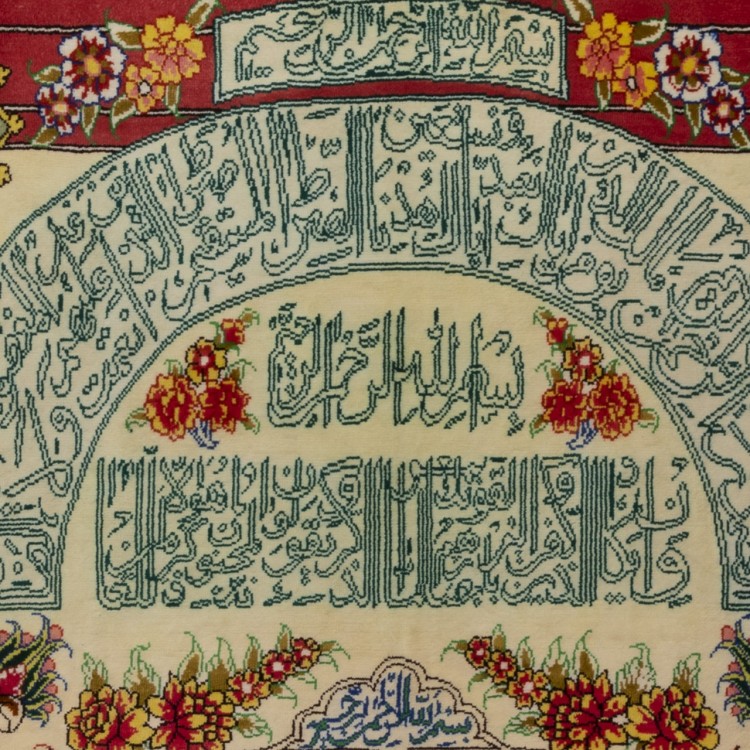 بسم الله الرحمن الرحيم
اياك نعبد واياك نستعين اهدنا الصراط المستقيم صراط الذين انعمت
بسم الله الرحمن الرحيم
وان يكاد الذين كفروا ليزلقونك بابصارهم لما سمعوا الذكر ويقولون انه لمجنون وما هو الا ذكر للعالمين
بسم الله الرحمن الرحيم